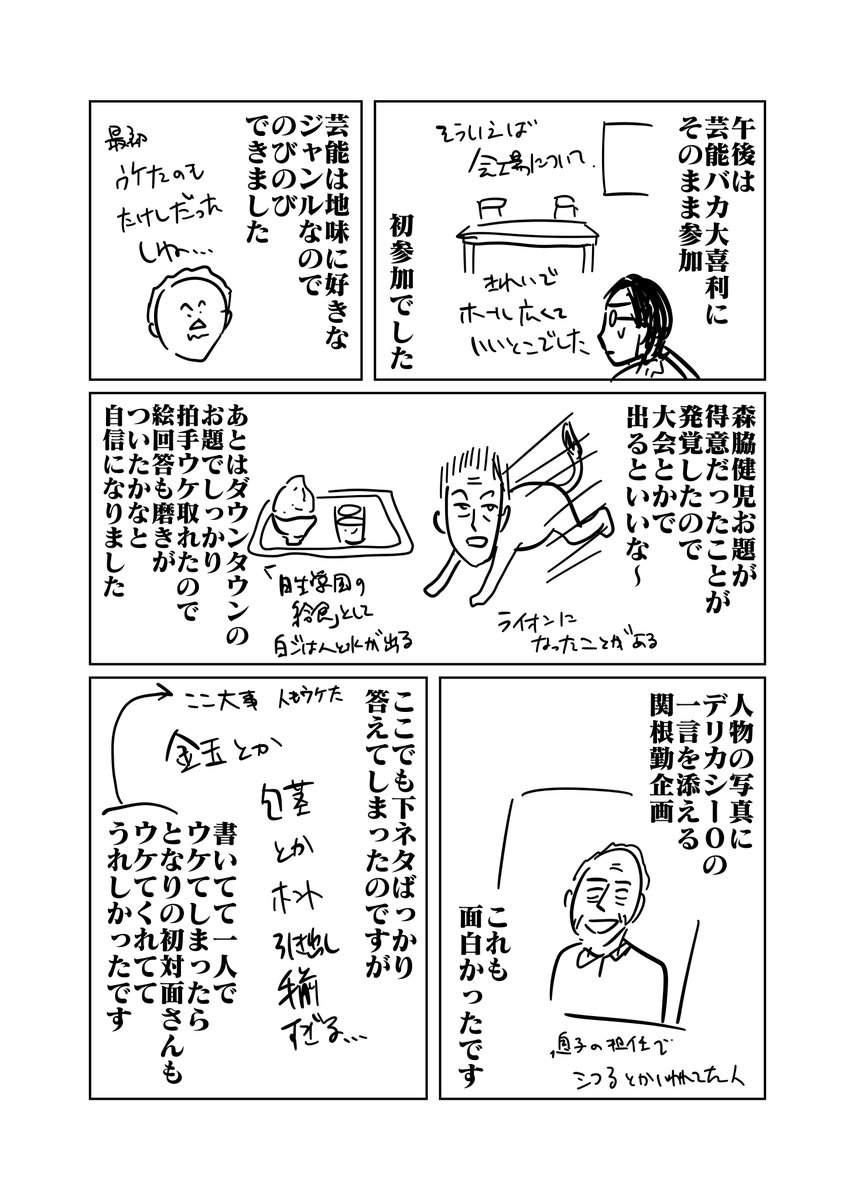 午後は
芸能バカ大喜利に
そのまま参加
そういえば
会場について
きれいで
ホール広くて
いいとこでした
初参加でした
芸能は地味に好きな
ジャンルなので
のびのび
できました
最初
ウケたのも
たけしだった
しね…
森脇健児お題が
得意だったことが
発覚したので
大会とかで
出るといいな〜
ライオンに
なったことがある
あとはダウンタウンの
お題でしっかり
拍手ウケ取れたので
絵回答も磨きが
ついたかなと
自信になりました
「自生学園の
給食」として
白ごはんと水が出る
人物の写真に
デリカシー0の
一言を添える
関根勤企画
これも
面白かったです
息子の担任で
シコるとか
人
ここでも下ネタばっかり
答えてしまったのですが
ここ大事
人もウケた
金玉とか
包茎
とか
ホント
引き出し
すぎる…
書いてて一人で
ウケてしまったら
となりの初対面さんも
ウケてくれてて
うれしかったです